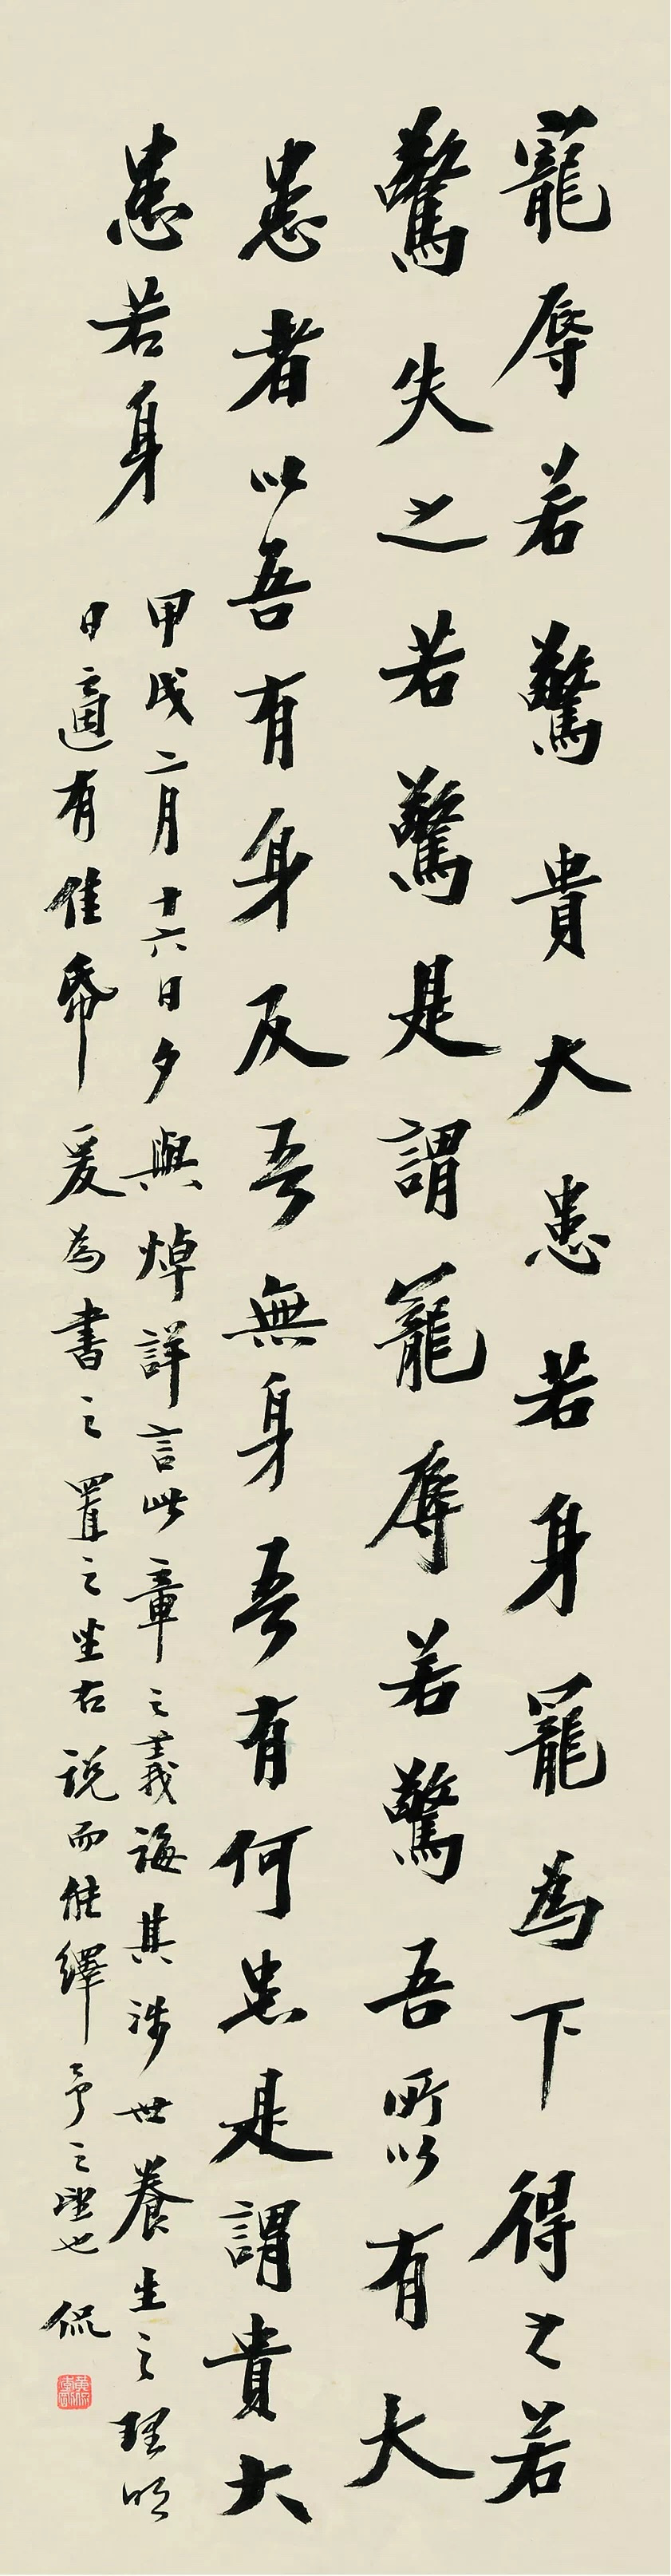 寵辱若驚貴大患若身寵為下得之若
驚失之若驚是謂寵辱若驚吾所以有大
患者以吾有身及吾無身吾有何患是謂貴大
患若身
甲戌二月十六日夕與焯詳言此章之義誨其涉世養生之理明
日適有佳帋爰為書之置之坐右説而能繹予之望也 侃